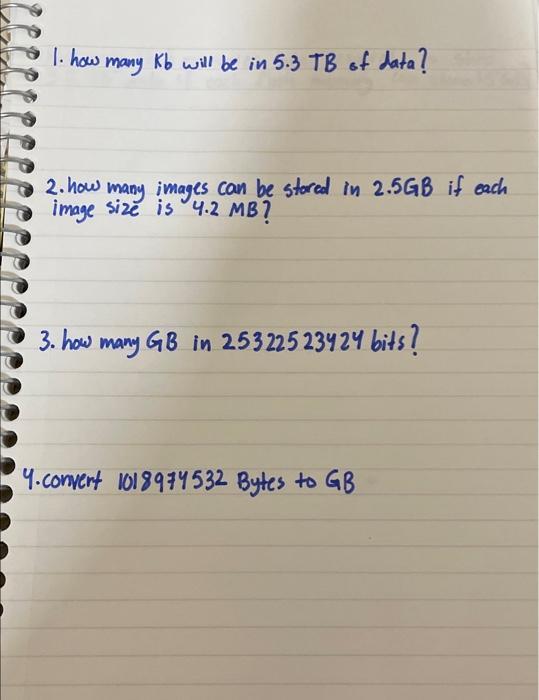 1. how many Kb will be in 5.3 TB of data?
2. how many images can be stored in 2.5GB if each
image size is 4.2 MB?
3. how many GB in 25322523424 bits?
4. convert 1018974532 Bytes to GB